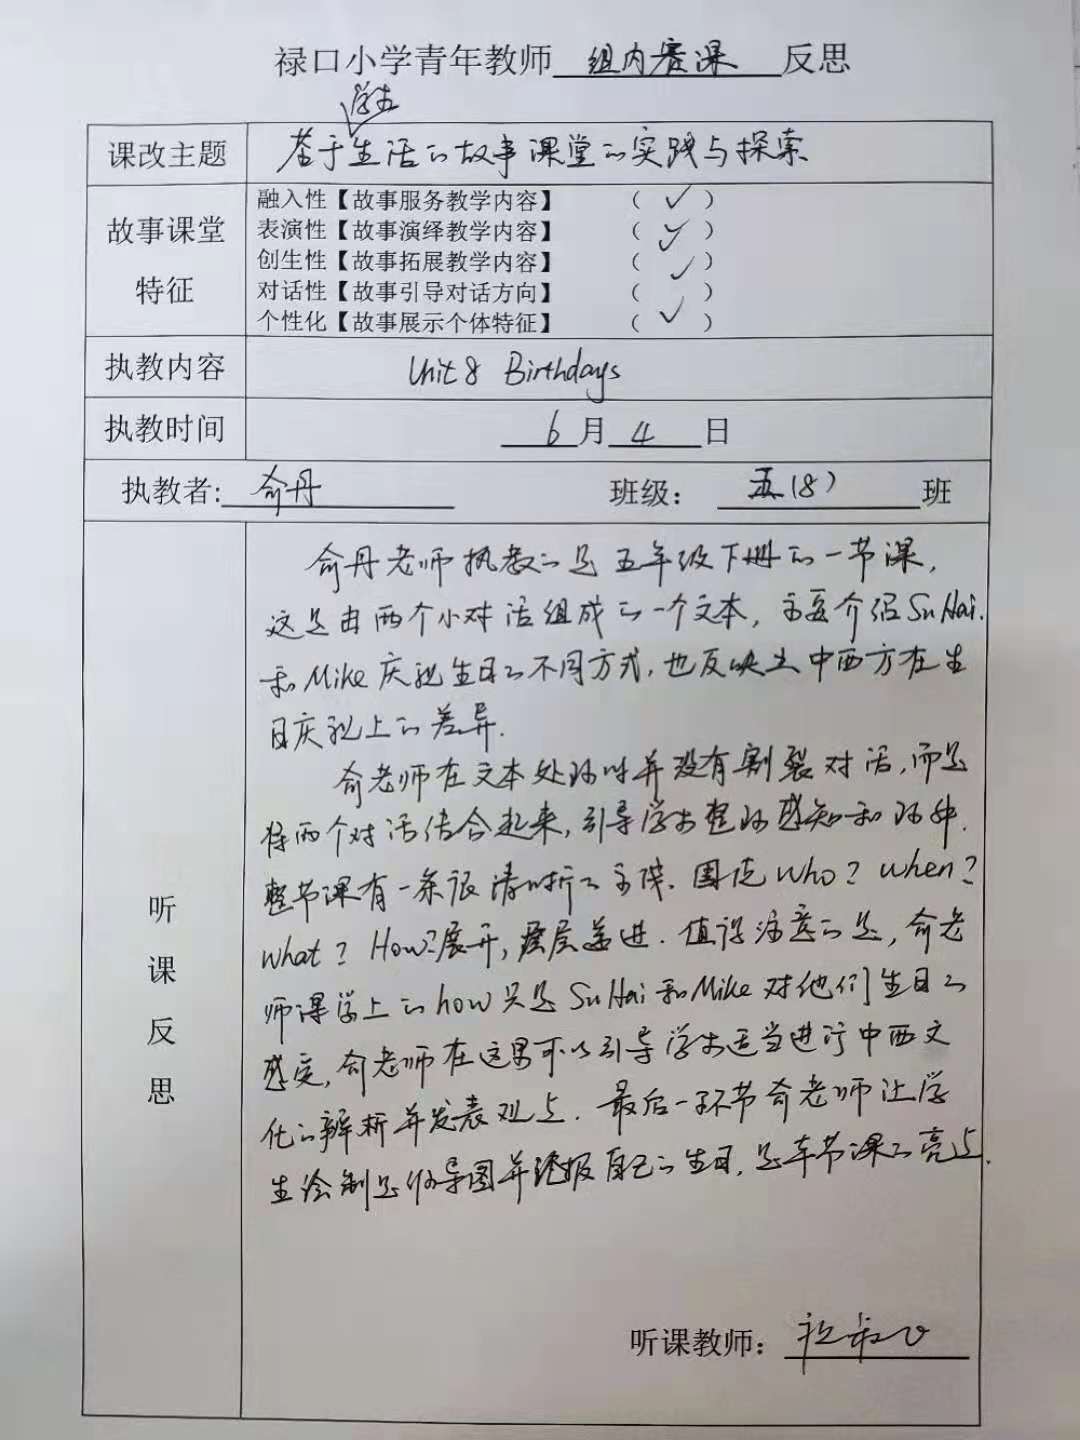 禄口小学青年教师 组内赛课 反思
学生
课改主题 基于生活的故事课堂的实践与探索
故事课堂特征
融入性【故事服务教学内容】 （ ✓ ）
表演性【故事演绎教学内容】 （ ✓ ）
创生性【故事拓展教学内容】 （ ✓ ）
对话性【故事引导对话方向】 （ ）
个性化【故事展示个体特征】 （ ✓ ）
执教内容 Unit 8 Birthdays
执教时间 6月4日
执教者: 俞丹 班级： 五(8) 班
听课反思
俞丹老师执教的是五年级下册的一节课，
这是由两个小对话组成的一个文本，主要介绍Su Hai.
和Mike庆祝生日的不同方式，也反映出中西方在生
日庆祝上的差异.
俞老师在文本处理时并没有割裂对话，而是
将两个对话结合起来，引导学生整理感知和理解.
整节课有一条很清晰的主线. 围绕 Who? When?
What? How?展开，层层递进. 值得注意的是，俞老
师课堂上的how只是Su Hai和Mike对他们生日的
感受，俞老师在这里可以引导学生适当进行中西文
化的辨析并发表观点. 最后一环节俞老师让学
生绘制思维导图并汇报自己的生日，是本节课的亮点.
听课教师：